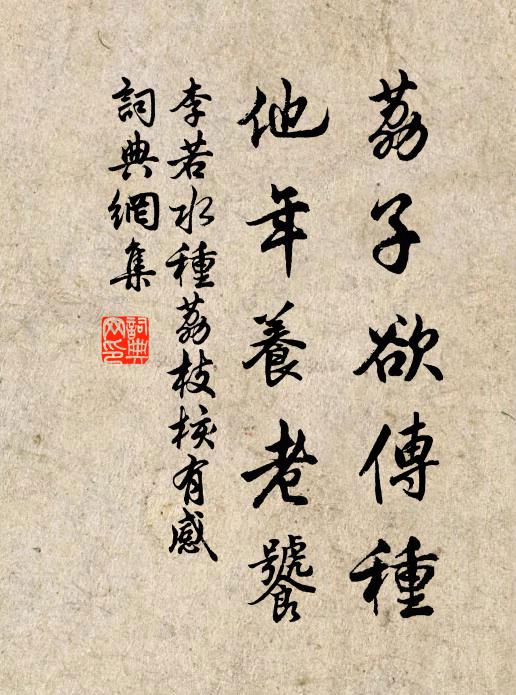 荔子欲傳種
他年養老饕
李若水種荔枝核有感
詞典網集
詞典
网印